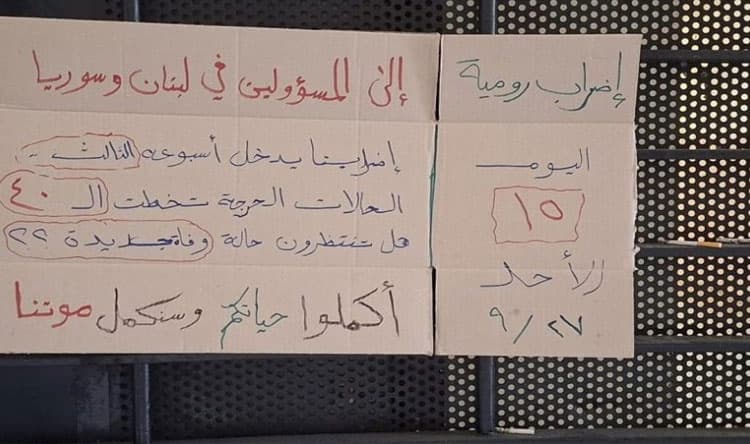 إضراب رومية
اليوم
١٥
الأحد
٩/٢٧
إلى المسؤولين في لبنان وسوريا
إضرابنا يدخل أسبوعه الثالث ..
الحالات الحرجة تخطت الـ ٤٠
هل تنتظرون حالة وفاة جديدة ؟؟
أكملوا حياتكم وسنكمل موتنا